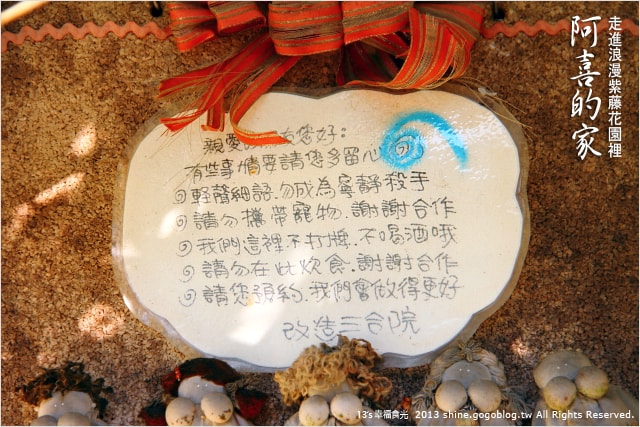 走進浪漫紫藤花園裡
阿喜的家
親愛 您好:
有些事情要請您多留心
◎輕聲細語.勿成為寧靜殺手
◎請勿攜帶寵物.謝謝合作
◎我們這裡不打牌.不喝酒哦
◎請勿在此炊食.謝謝合作
◎請您預約.我們會做得更好
改造三合院
13's幸福食光 2013 shine.gogoblog.tw All Rights Reserved.